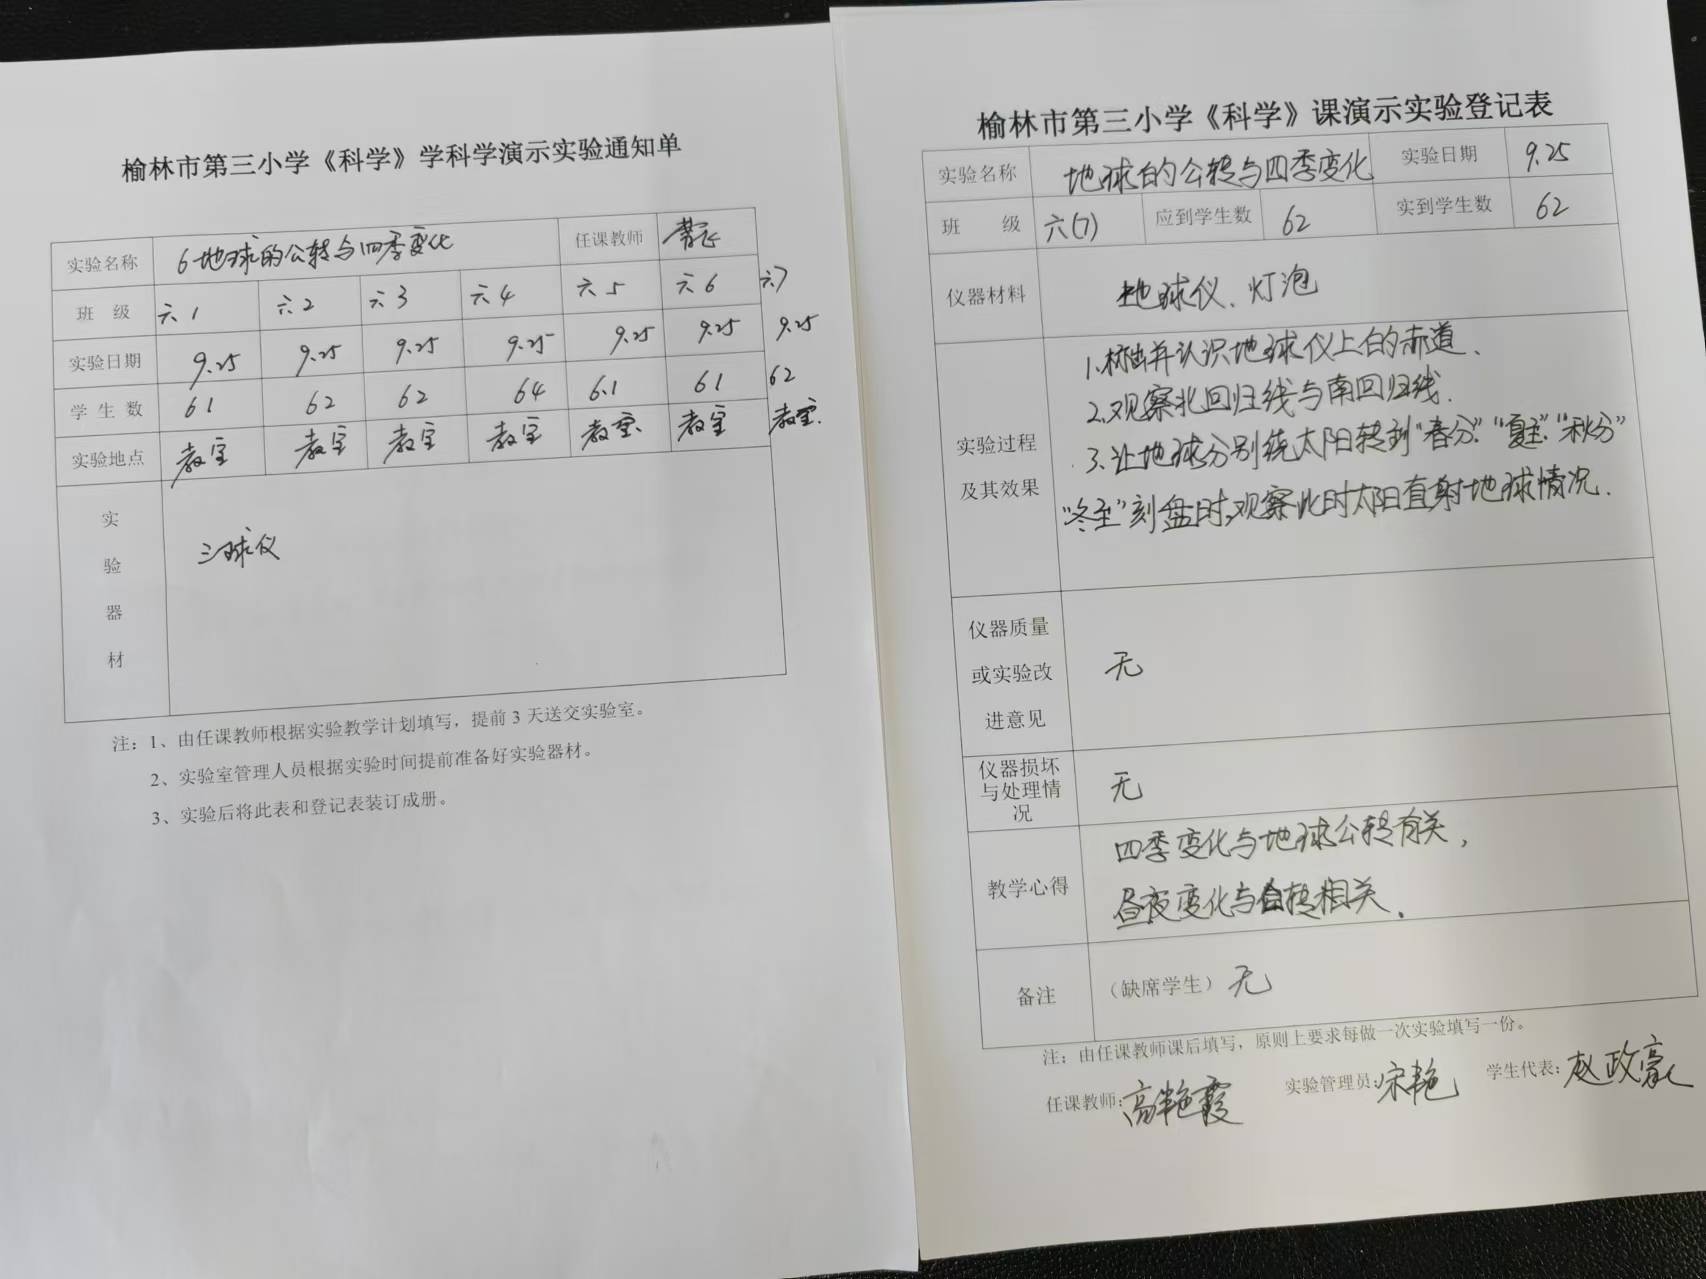 榆林市第三小学《科学》学科学演示实验通知单
实验名称 6 地球的公转与四季变化 任课教师
班 级 六1 六2 六3 六4 六5 六6 六7
实验日期 9.25 9.25 9.25 9.25 9.25 9.25 9.25
学 生 数 61 62 62 64 61 61 62
实验地点 教室 教室 教室 教室 教室 教室 教室
实验器材 三球仪
注：1、由任课教师根据实验教学计划填写，提前3天送交实验室。
2、实验室管理人员根据实验时间提前准备好实验器材。
3、实验后将此表和登记表装订成册。
榆林市第三小学《科学》课演示实验登记表
实验名称 地球的公转与四季变化 实验日期 9.25
班 级 六(7) 应到学生数 62 实到学生数 62
仪器材料 地球仪、灯泡
实验过程及其效果
1.并认识地球仪上的赤道、
2.观察北回归线与南回归线.
3.让地球分别绕太阳转到“春分”“夏至”“秋分”
“冬至”刻盘时,观察此时太阳直射地球情况.
仪器质量或实验改进意见 无
仪器损坏与处理情况 无
教学心得 四季变化与地球公转有关,
昼夜变化与自转相关.
备注 （缺席学生）无
注：由任课教师课后填写，原则上要求每做一次实验填写一份。
任课教师:高艳霞 实验管理员:宋艳 学生代表:赵政豪